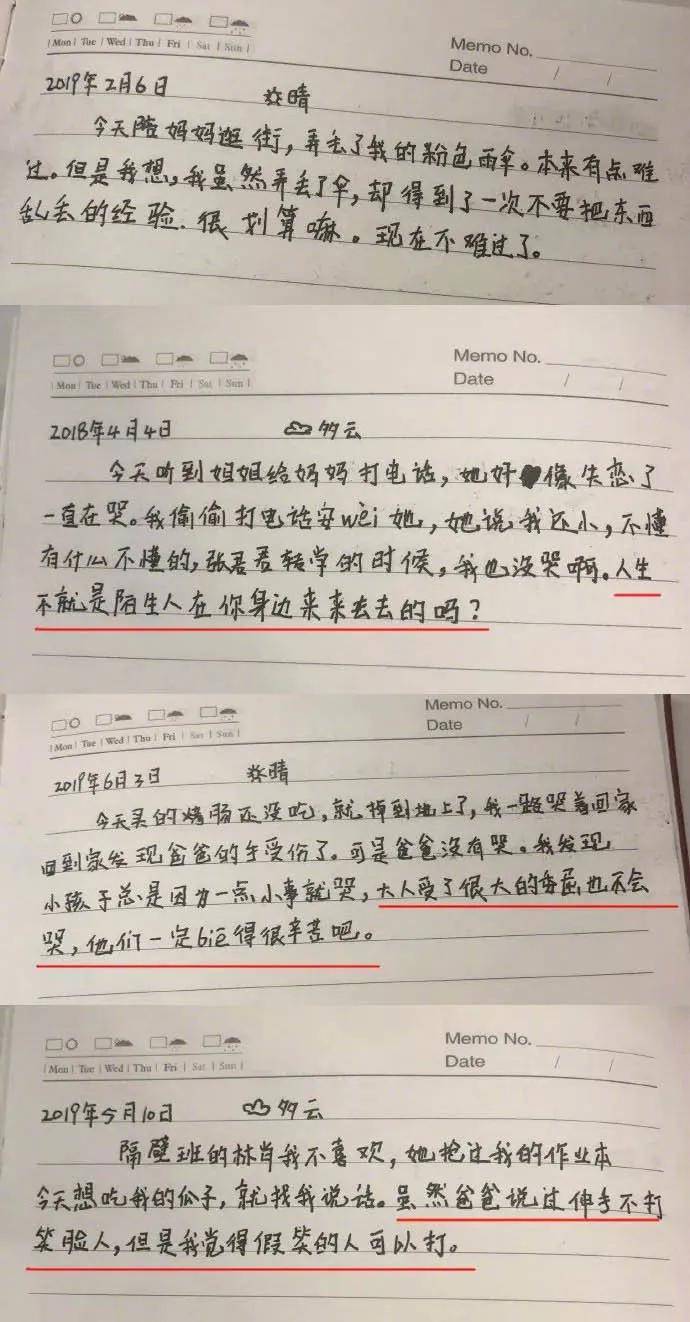 Mon | Tue | Wed | Thu | Fri | Sat | Sun
Memo No.
Date / /
2019年2月6日 晴
今天陪妈妈逛街,弄丢了我的粉色雨伞。本来有点难
过。但是我想,我虽然弄丢了伞,却得到了一次不要把东西
乱丢的经验.很划算嘛。现在不难过了。
Memo No.
Mon | Tue | Wed | Thu | Fri | Sat | Sun
Date / /
2018年4月4日 多云
今天听到姐姐给妈妈打电话,她好像失恋了
一直在哭。我偷偷打电话安wèi她,她说我还小,不懂
有什么不懂的,张君君转学的时候,我也没哭啊。人生
不就是陌生人在你身边来来去去的吗?
Memo No.
Date / /
Mon | Tue | Wed | Thu | Fri | Sat | Sun
2019年6月3日 晴
今天买的烤肠还没吃,就掉到地上了,我一路哭着回家
回到家发现爸爸的手受伤了。可是爸爸没有哭。我发现
小孩子总是因为一点小事就哭,大人受了很大的委屈也不会
哭,他们一定biē得很辛苦吧。
Memo No.
Mon | Tue | Wed | Thu | Fri | Sat | Sun
Date / /
2019年5月10日 多云
隔壁班的林肖我不喜欢,她抢过我的作业本
今天想吃我的瓜子,就找我说话。虽然爸爸说过伸手不打
笑脸人,但是我觉得假笑的人可以打。